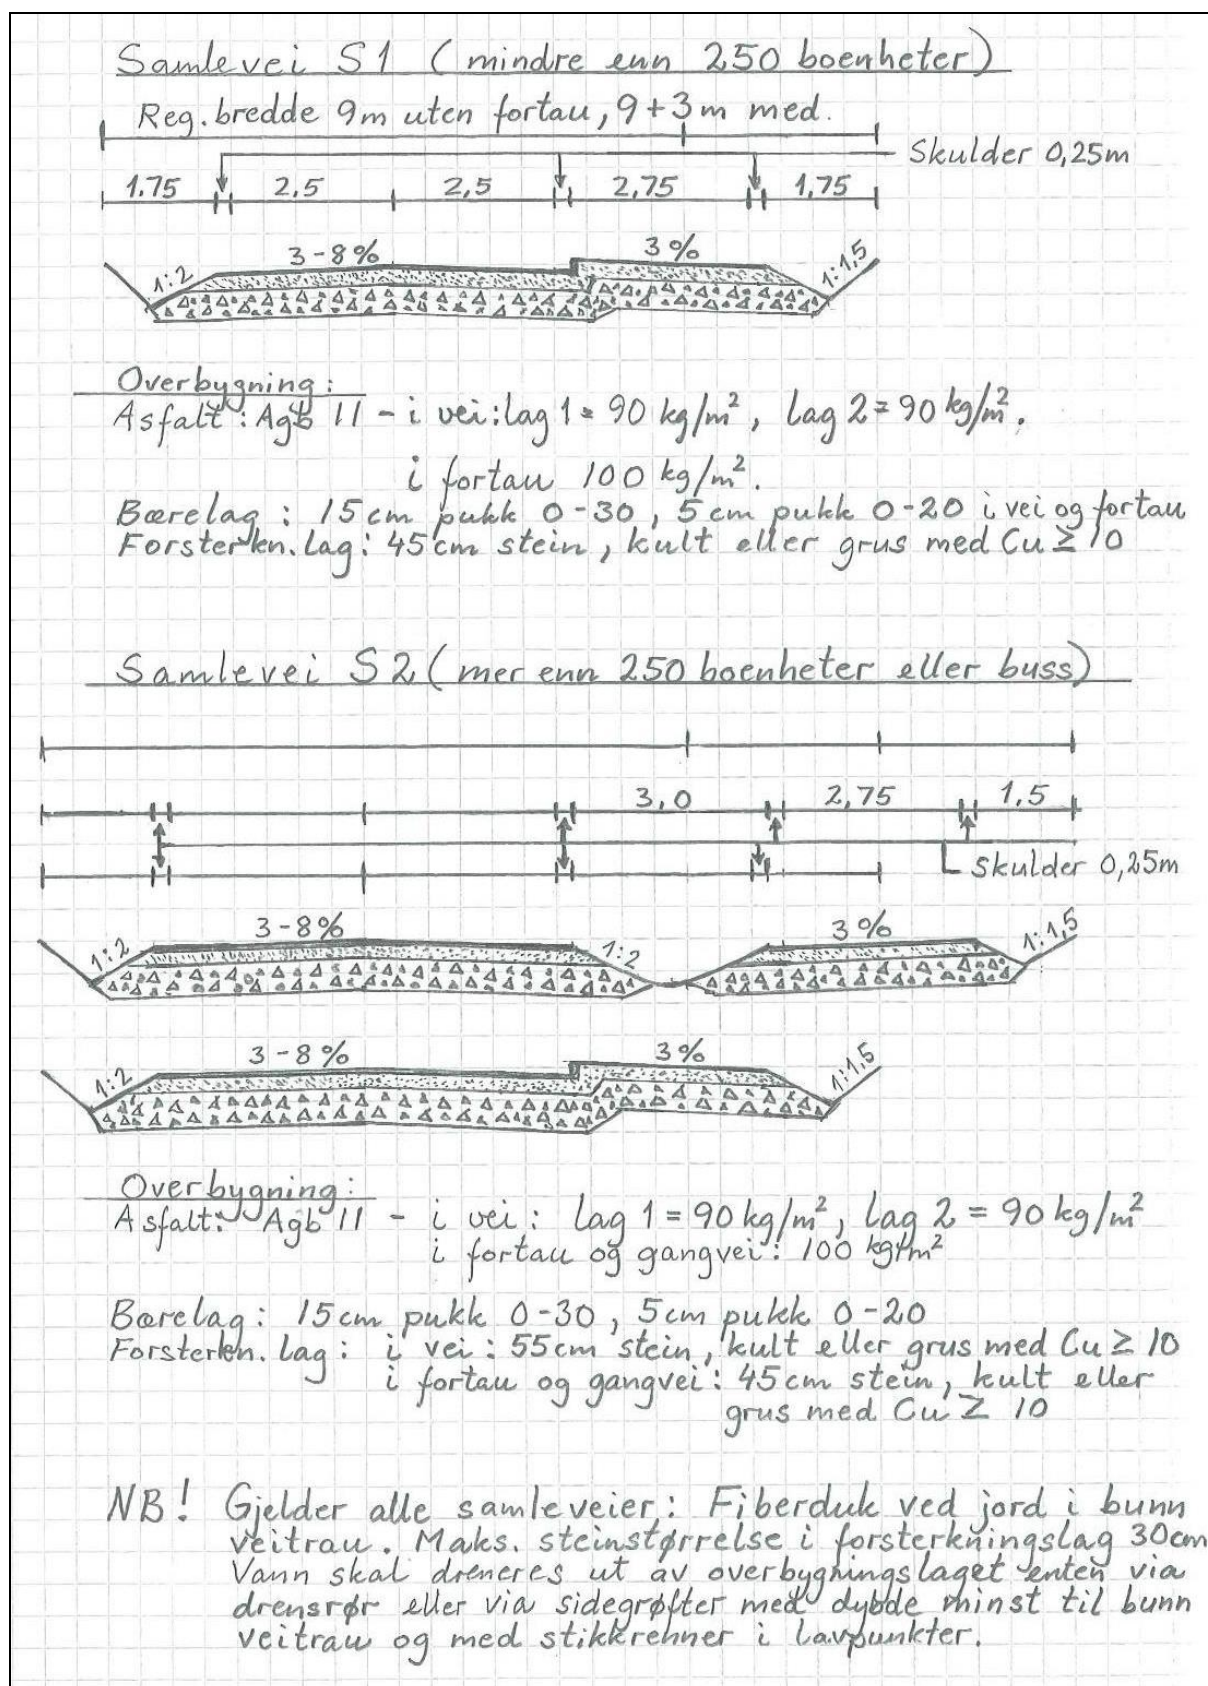 Samlevei S1 (mindre enn 250 boenheter)
Reg. bredde 9m uten fortau, 9+3m med.
Skulder 0,25m
1.75 2,5 2,5 2,75 1,75
1:2 3-8% 3% 1:1,5
Overbygning:
Asfalt: Agb 11 - i vei: lag 1 = 90 kg/m², lag 2 = 90 kg/m².
i fortau 100 kg/m².
Bærelag: 15cm pukk 0-30, 5cm pukk 0-20 i vei og fortau
Forsterkn. lag: 45cm stein, kult eller grus med Cu ≥ 10
Samlevei S2 (mer enn 250 boenheter eller buss)
3,0 2,75 1.5
Skulder 0,25m
1:2 3-8% 1:2 3% 1:1,5
1:2 3-8% 3% 1:1,5
Overbygning:
Asfalt: Agb 11 - i vei: lag 1 = 90 kg/m², lag 2 = 90 kg/m²
i fortau og gangvei: 100 kg/m²
Bærelag: 15cm pukk 0-30, 5cm pukk 0-20
Forsterkn. lag: i vei: 55cm stein, kult eller grus med Cu ≥ 10
i fortau og gangvei: 45cm stein, kult eller
grus med Cu ≥ 10
NB! Gjelder alle samleveier: Fiberduk ved jord i bunn
veitrau. Maks. steinstørrelse i forsterkningslag 30cm
Vann skal dreneres ut av overbygningslaget enten via
drensrør eller via sidegrøfter med dybde minst til bunn
veitrau og med stikkrenner i lavpunkter.